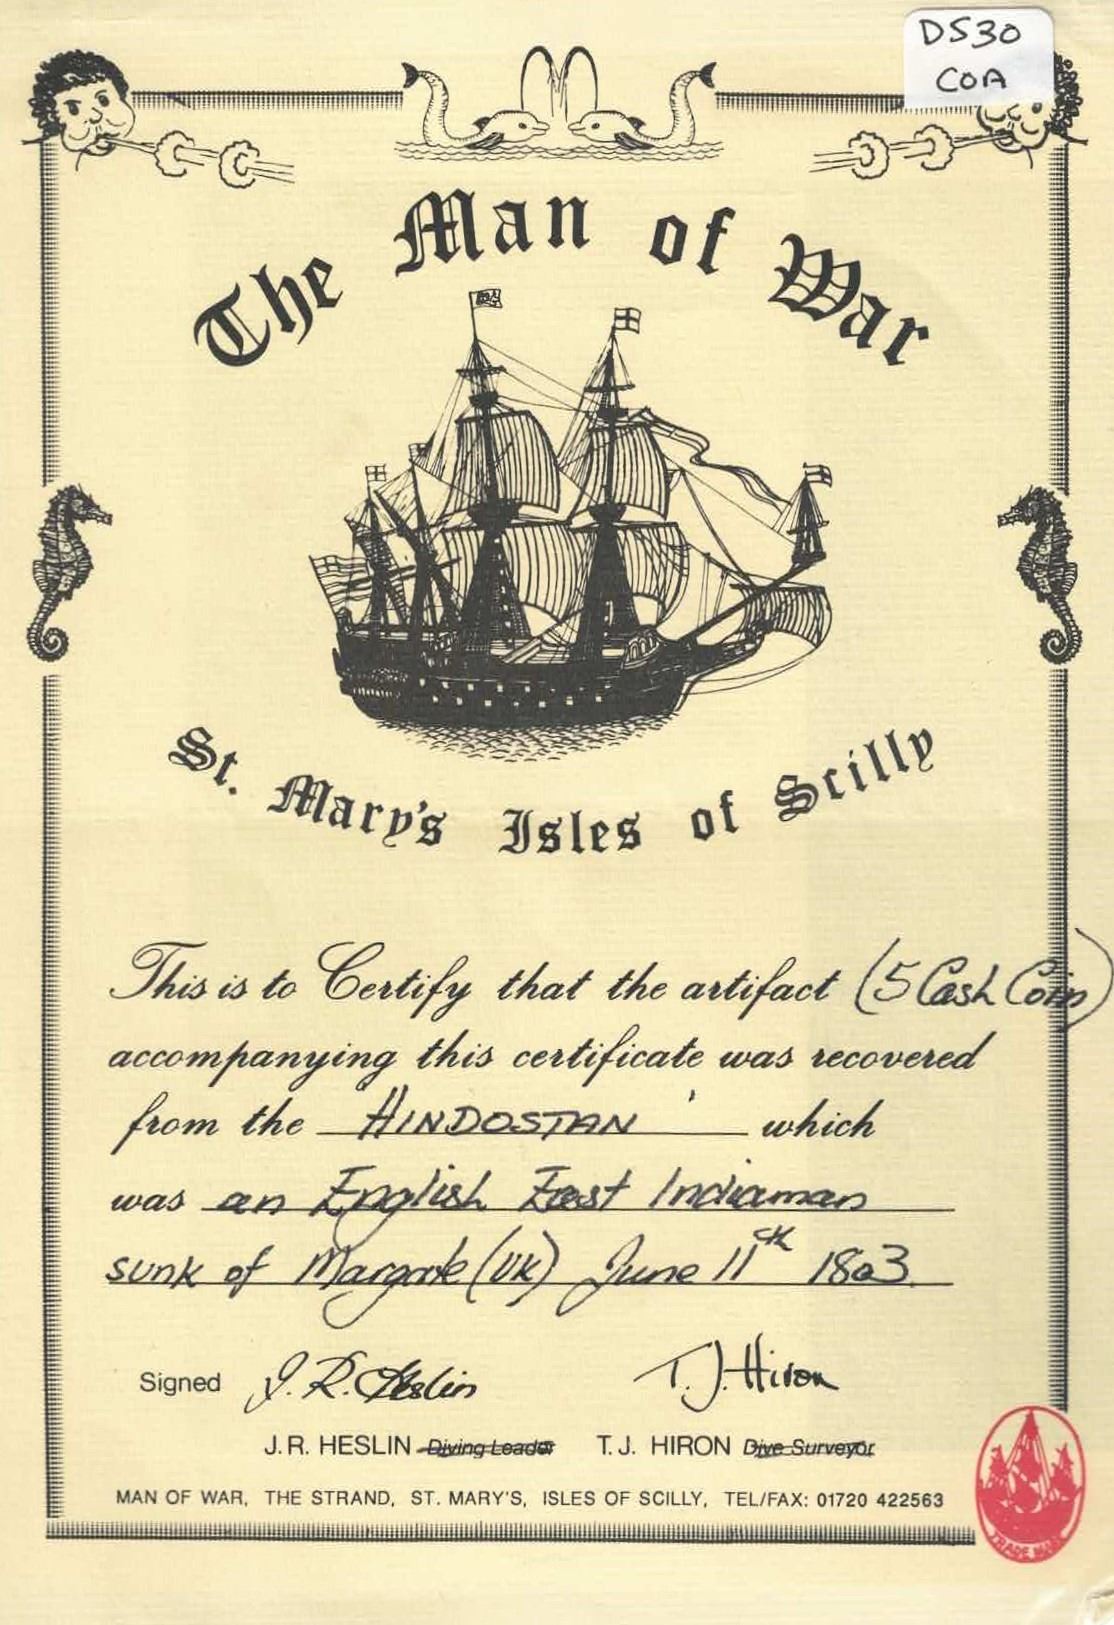 DS30
COA
The Man of War
St. Mary's Isles of Scilly
This is to Certify that the artifact (5 Cash Coin)
accompanying this certificate was recovered
from the HINDOSTAN which
was an English East Indiaman
sunk of Margate (UK) June 11th 1803
Signed J.R. Heslin T.J. Hiron
J.R. HESLIN Diving Leader T.J. HIRON Dive Surveyor
MAN OF WAR, THE STRAND, ST. MARY'S, ISLES OF SCILLY, TEL/FAX: 01720 422563
TRADE MARK